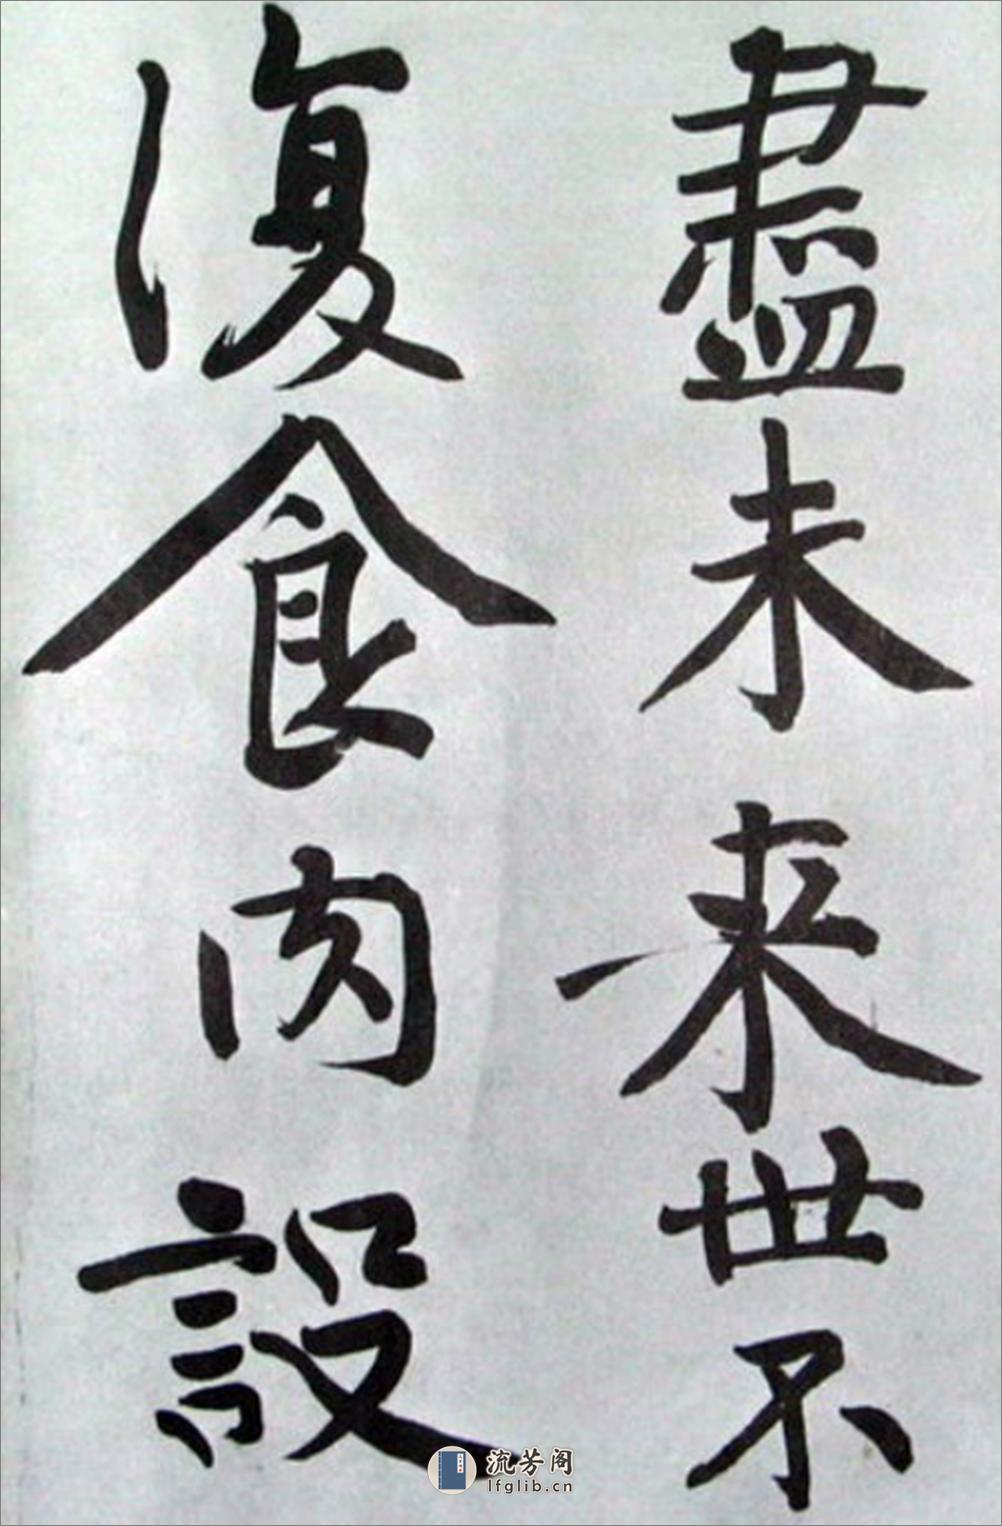 盡未来世不
復食肉設
流芳阁
lfglib.cn